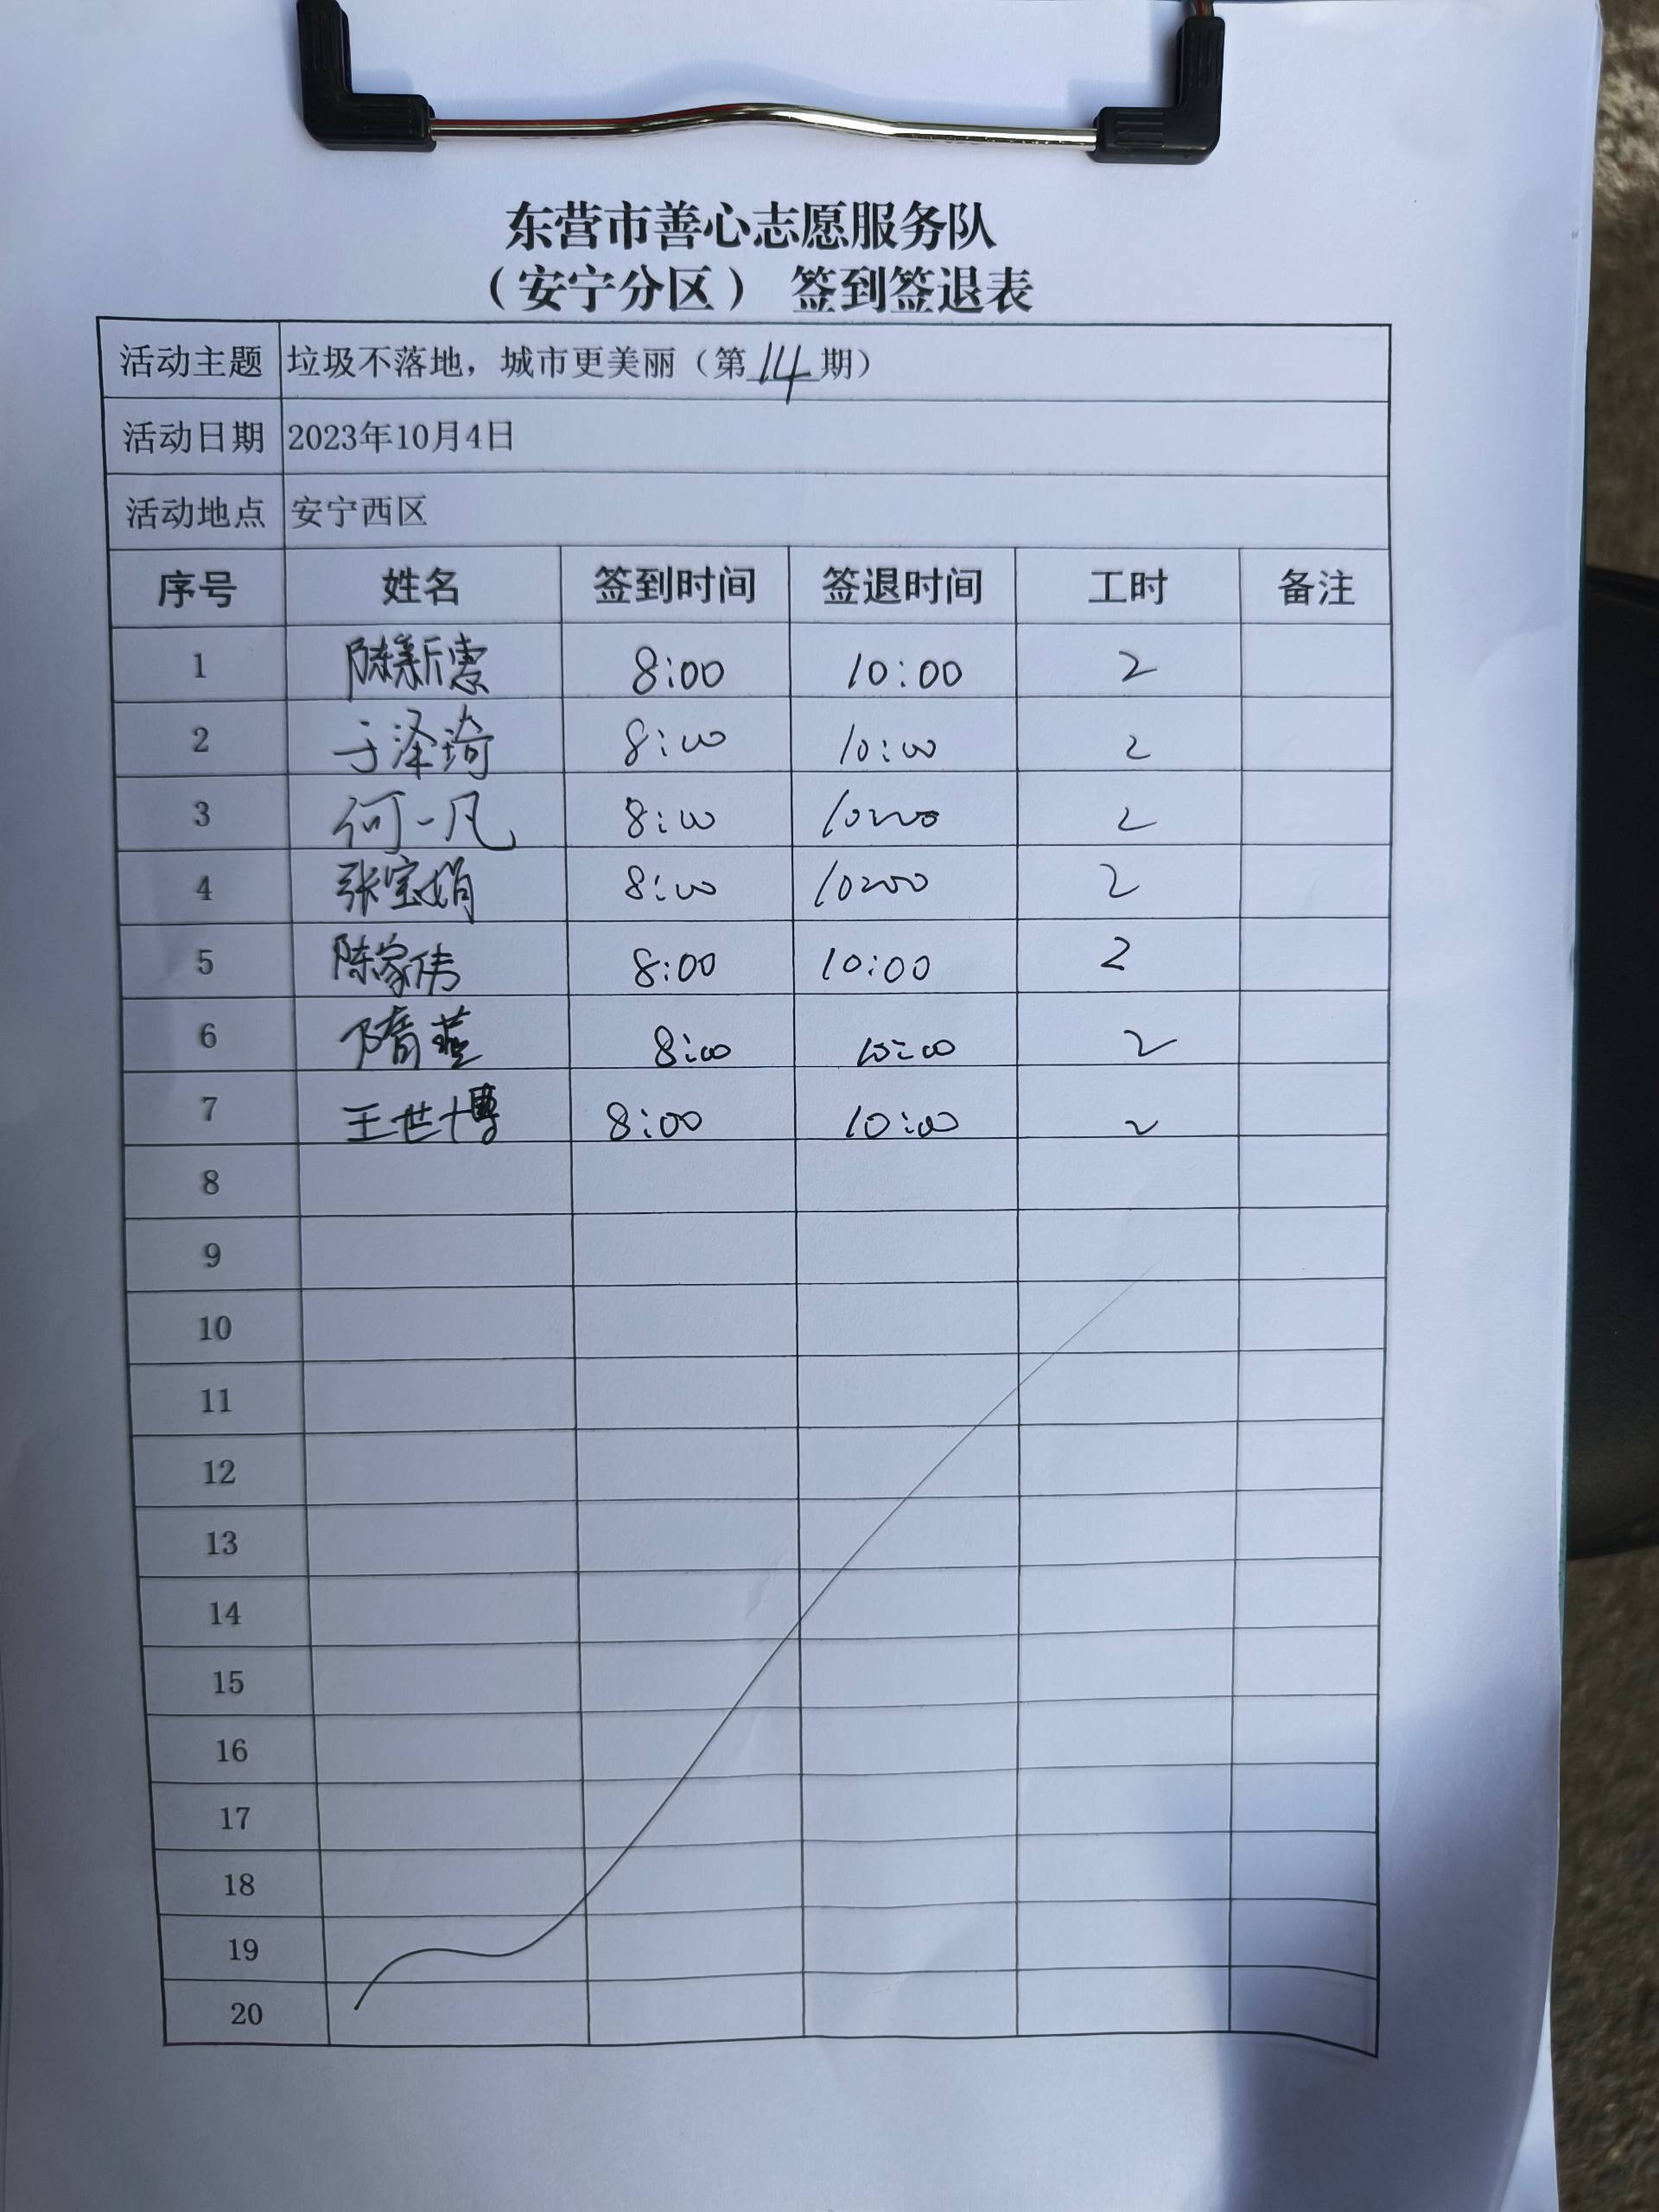 东营市善心志愿服务队
（安宁分区） 签到签退表
活动主题 垃圾不落地，城市更美丽（第14期）
活动日期 2023年10月4日
活动地点 安宁西区
序号 姓名 签到时间 签退时间 工时 备注
1 陈新惠 8:00 10:00 2
2 于泽琦 8:00 10:00 2
3 何一凡 8:00 10:00 2
4 张宝娟 8:00 10:00 2
5 陈家伟 8:00 10:00 2
6 隋燕 8:00 10:00 2
7 王世博 8:00 10:00 2
8
9
10
11
12
13
14
15
16
17
18
19
20